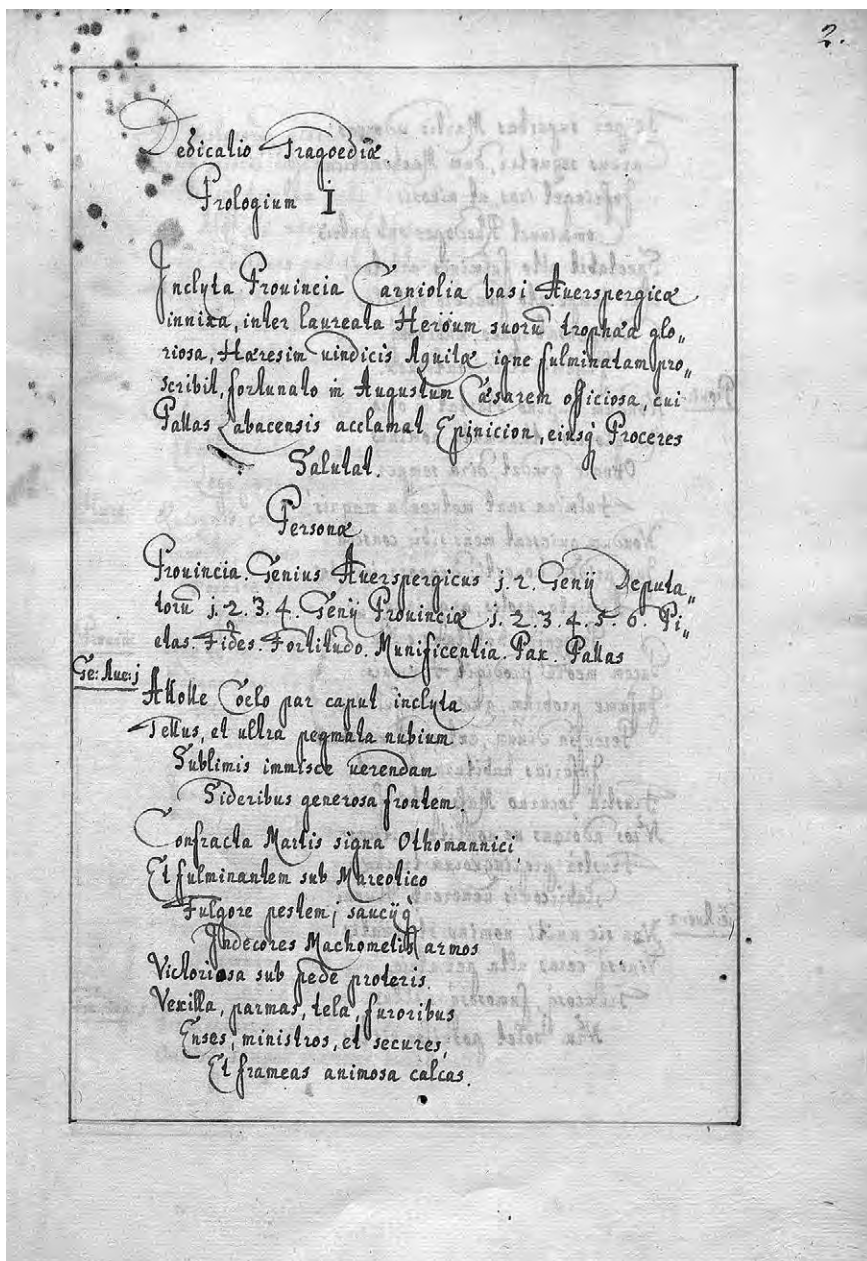 2.
Dedicatio Tragoediæ
Prologium I
Inclyta Prouincia Carniolia basi Auerspergicæ
innixa, inter laureata Heroum suorũ trophæa glo„
riosa, Hæresim uindicis Aquilæ igne fulminatam pro„
scribit, fortunato in Augustum Cæsarem officiosa, cui
Pallas Labacensis acclamat Epinicion, eiusq̀ Proceres
Salutat.
Personæ
Prouincia. Genius Auerspergicus j. 2. Genij Deputa„
torũ j. 2. 3. 4. Genij Prouinciæ j. 2. 3. 4. 5. 6. Pi„
etas. Fides. Fortitudo. Munificentia. Pax. Pallas
Ge: Aue: j
Attolle Coelo par caput inclyta
Tellus, et ultra pegmata nubium
Sublimis immisce uerendam
Sideribus generosa frontem.
Confracta Martis signa Othomannici,
Et fulminantem sub Mareotico
Fulgore pestem, saucijq̀
Indecores Machometis armos
Victoriosa sub pede proteris.
Vexilla, parmas, tela, furoribus
Enses, ministros, et secures,
Et frameas animosa calcas.